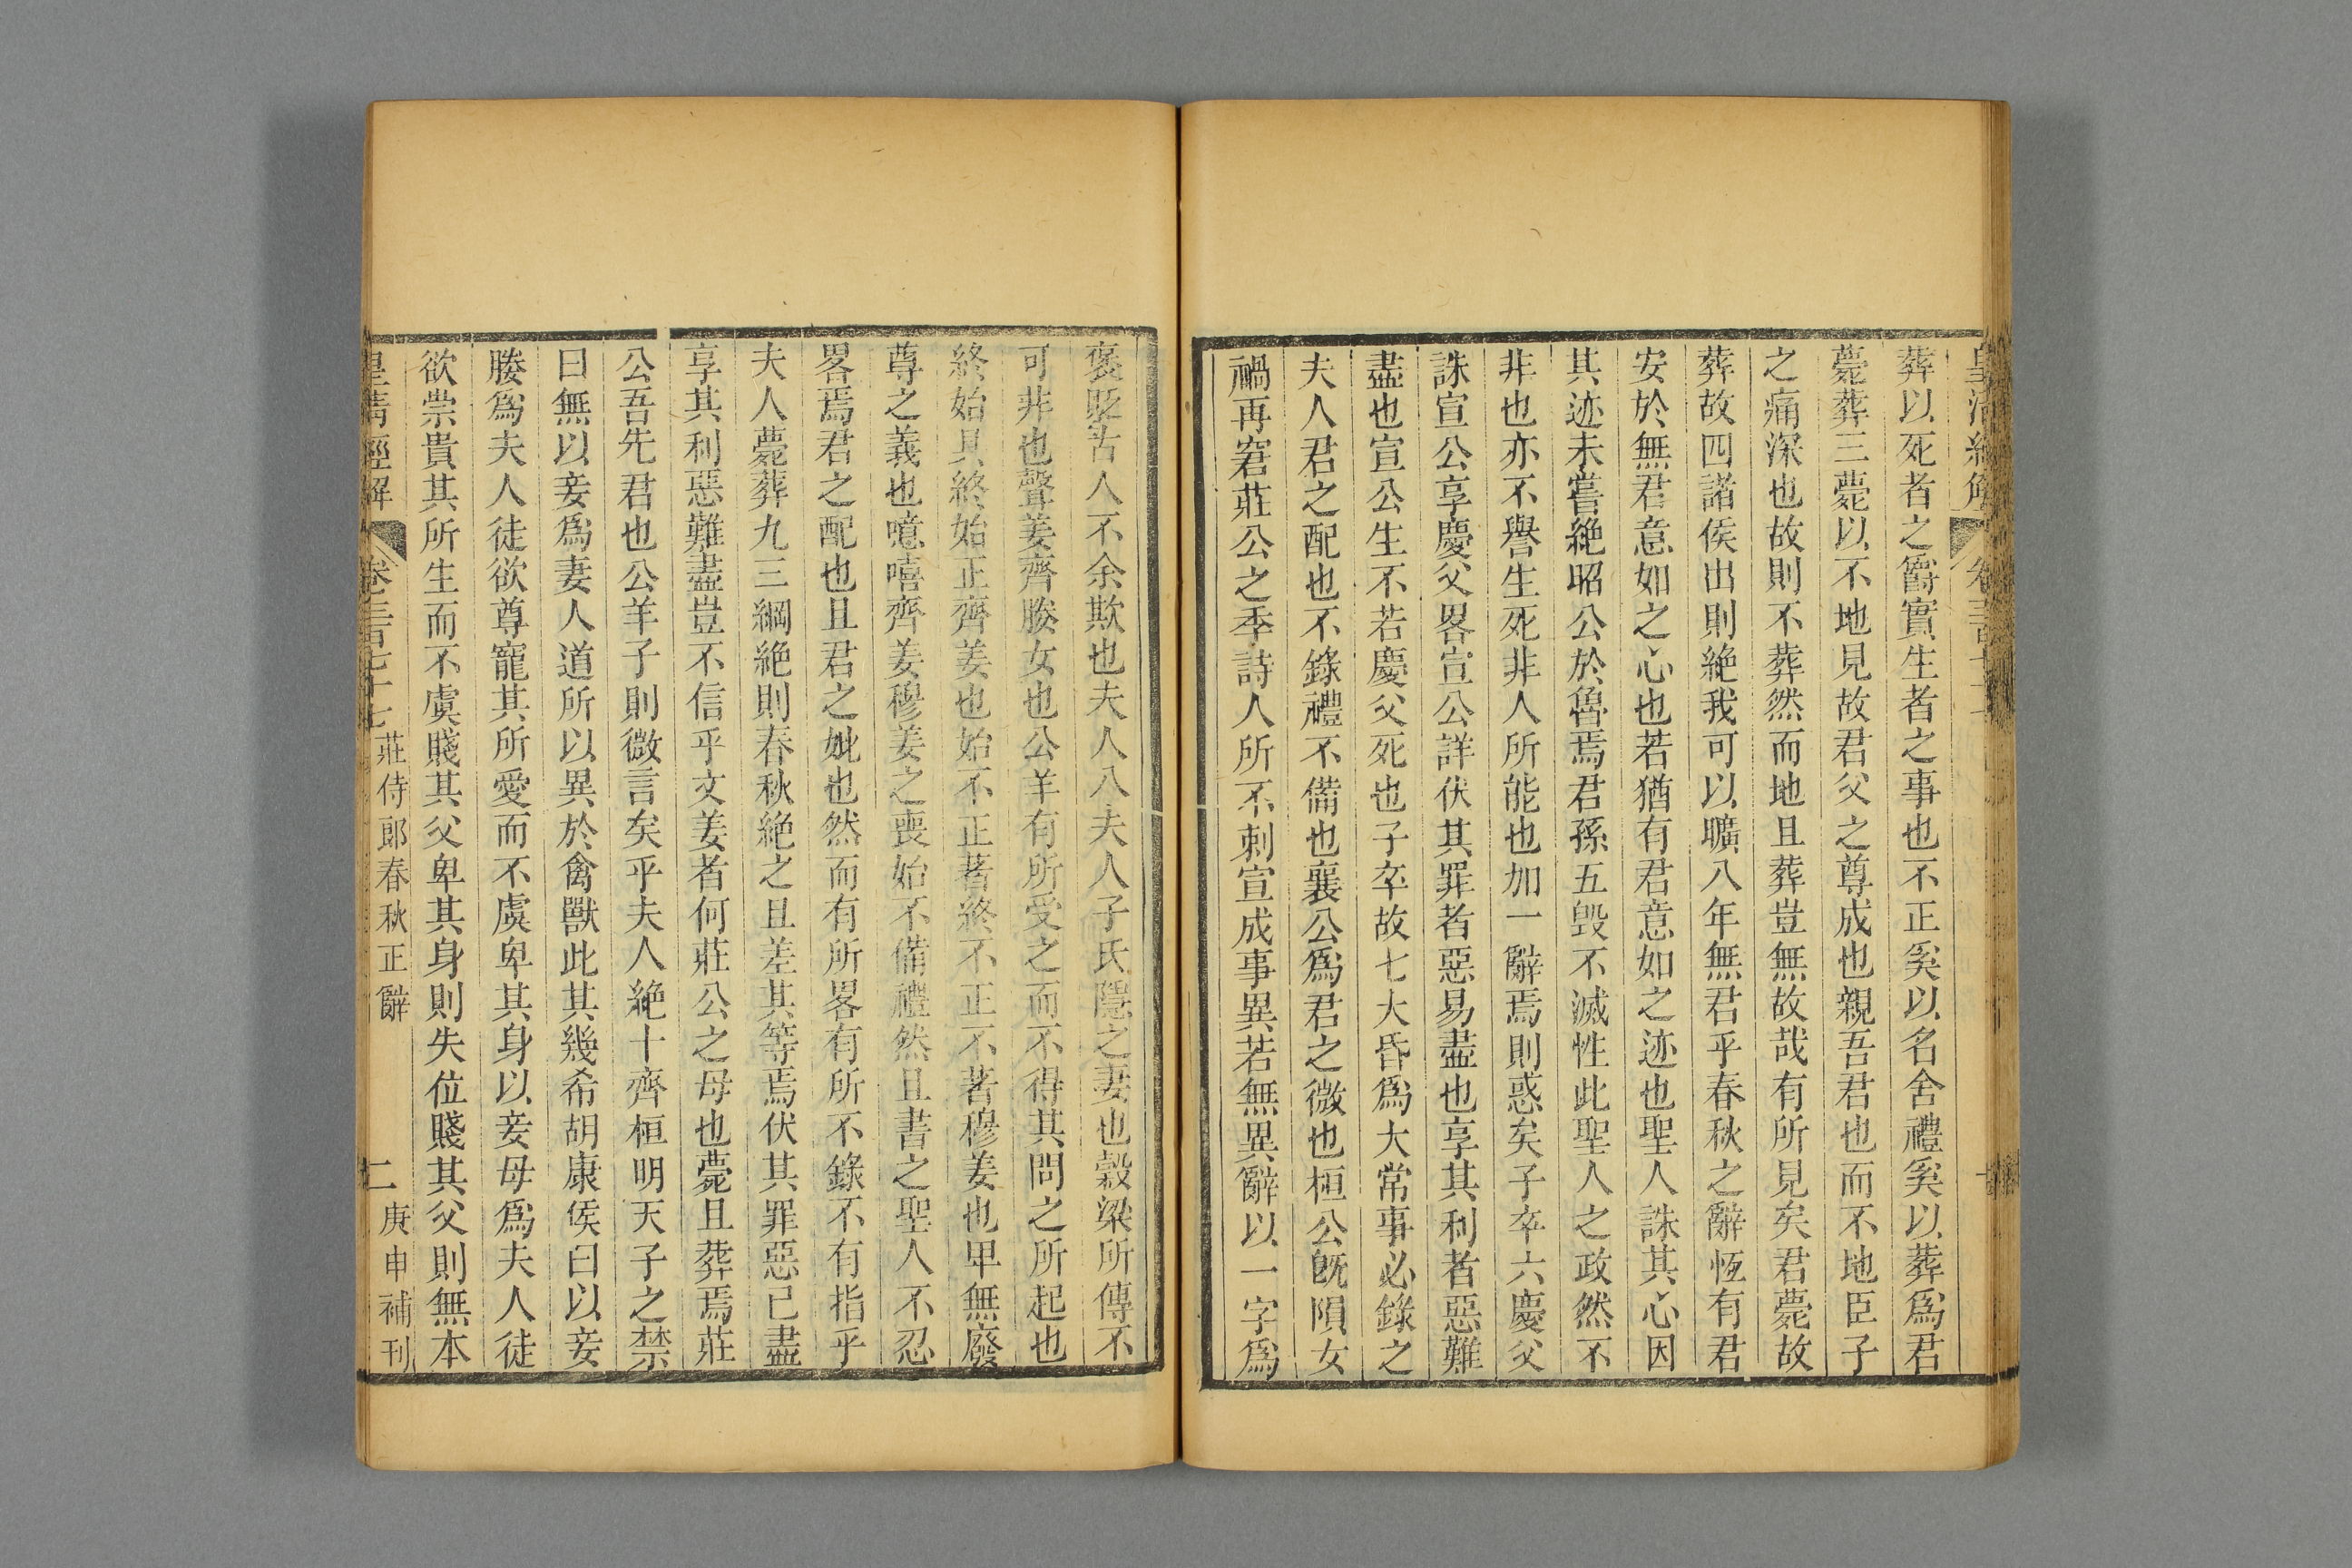 葬以死者之爵實生者之事也不正奚以名舍禮奚以葬爲君
薨葬三薨以不地見故君父之尊成也親吾君也而不地臣子
之痛深也故則不葬然而地且葬豈無故哉有所見矣君薨故
葬故四諸侯出則絶我可以曠八年無君乎春秋之辭恆有君
安於無君意如之心也若猶有君意如之迹也聖人誅其心因
其迹未嘗絶昭公於魯焉君孫五毁不滅性此聖人之政然不
非也亦不譽生死非人所能也加一辭焉則惑矣子卒六慶父
誅宣公享慶父畧宣公詳伏其罪者惡易盡也享其利者惡難
盡也宣公生不若慶父死也子卒故七大昏爲大常事必錄之
夫人君之配也不錄禮不備也襄公爲君之微也桓公旣隕女
禍再窘莊公之季詩人所不刺宣成事異若無異辭以一字爲
褒貶古人不余欺也夫人八夫人子氏隱之妻也穀梁所傳不
可非也聲姜齊媵女也公羊有所受之而不得其問之所起也
終始具終始正齊姜也始不正著終不正不著穆姜也甲無廢
尊之義也噫嘻齊姜穆姜之喪始不備禮然且書之聖人不忍
畧焉君之配也且君之妣也然而有所畧有所不錄不有指乎
夫人薨葬九三綱絶則春秋絶之且差其等焉伏其罪惡已盡
享其利惡難盡豈不信乎文姜者何莊公之母也薨且葬焉莊
公吾先君也公羊子則微言矣乎夫人絶十齊桓明天子之禁
曰無以妾爲妻人道所以異於禽獸此其幾希胡康侯曰以妾
媵爲夫人徒欲尊寵其所愛而不虞卑其身以妾母爲夫人徒
欲祟貴其所生而不虞賤其父卑其身則失位賤其父則無本
皇清經解 卷三百七十七 莊侍郎春秋正辭 二 庚申補刊